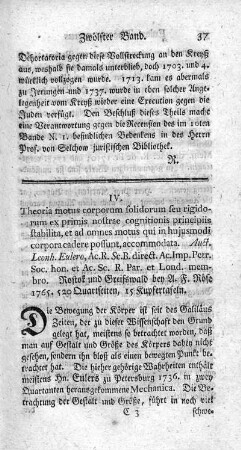 Zwölfter Band. 37
Dehortatoria gegen diese Vollstreckung an den Kreyß
aus, weshalb sie damals unterblieb, doch 1703. und 4.
würklich vollzogen wurde. 1713. kam es abermals
zu Irrungen und 1737. wurde in eben solcher Ange-
legenheit vom Kreyß wieder eine Execution gegen die
Juden verfügt. Den Beschluß dieses Theils macht
eine Verantwortung gegen die Recension des im 10ten
Bande N. 1. befindlichen Bedenkens in des Herrn
Prof. von Selchow juristischen Bibliothek.
R.
IV.
Theoria motus corporum solidorum seu rigido-
rum ex primis nostrae cognitionis principiis
stabilita, et ad omnes motus qui in hujusmodi
corpora cadere possunt, accommodata. Auct.
Leonh. Eulero, Ac. R. Sc. B. direct. Ac. Imp. Petr.
Soc. hon. et Ac. Sc. R. Par. et Lond. mem-
bro, Rostok und Greifswald bey A. F. Röse
1765. 520 Quartseiten, 15 Kupfertafeln.
Die Bewegung der Körper ist seit des Galiläus
Zeiten, der zu dieser Wissenschaft den Grund
gelegt hat, meistens so betrachtet worden, daß
man auf Gestalt und Größe des Körpers dabey nicht
gesehen, sondern ihn bloß als einen bewegten Punkt be-
trachtet hat. Die hieher gehörige Wahrheiten enthält
meistens Hn. Eulers zu Petersburg 1736. in zwey
Quartanten herausgekommene Mechanica. Die Be-
trachtung der Gestalt und Größe, führt in noch viel
C 3 schwe-